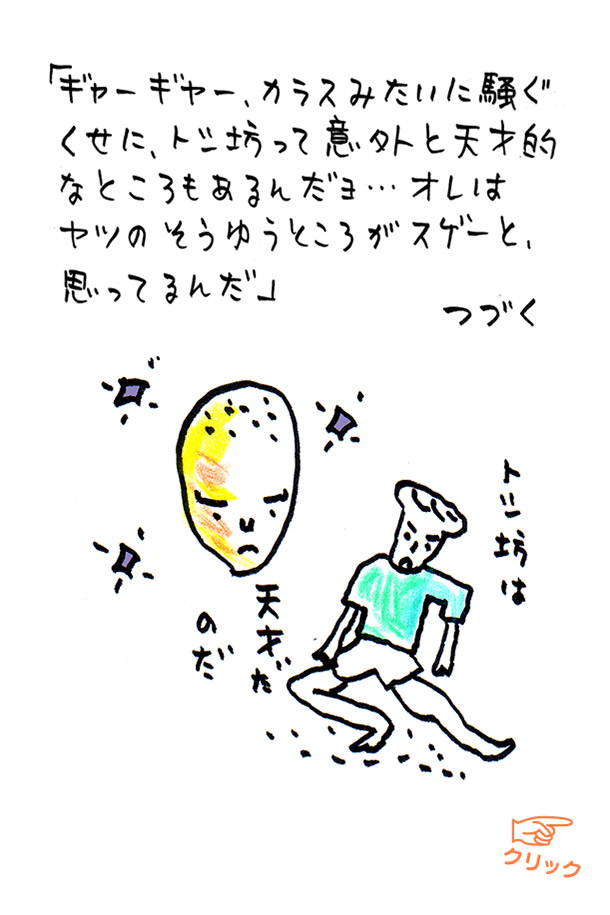 「ギャーギャー、カラスみたいに騒ぐ
くせに、トシ坊って意外と天才的
なところもあるんだヨ…オレは
ヤツのそうゆうところがスゲーと、
思ってるんだ」
つづく
トシ坊は
天才だ
のだ
クリック